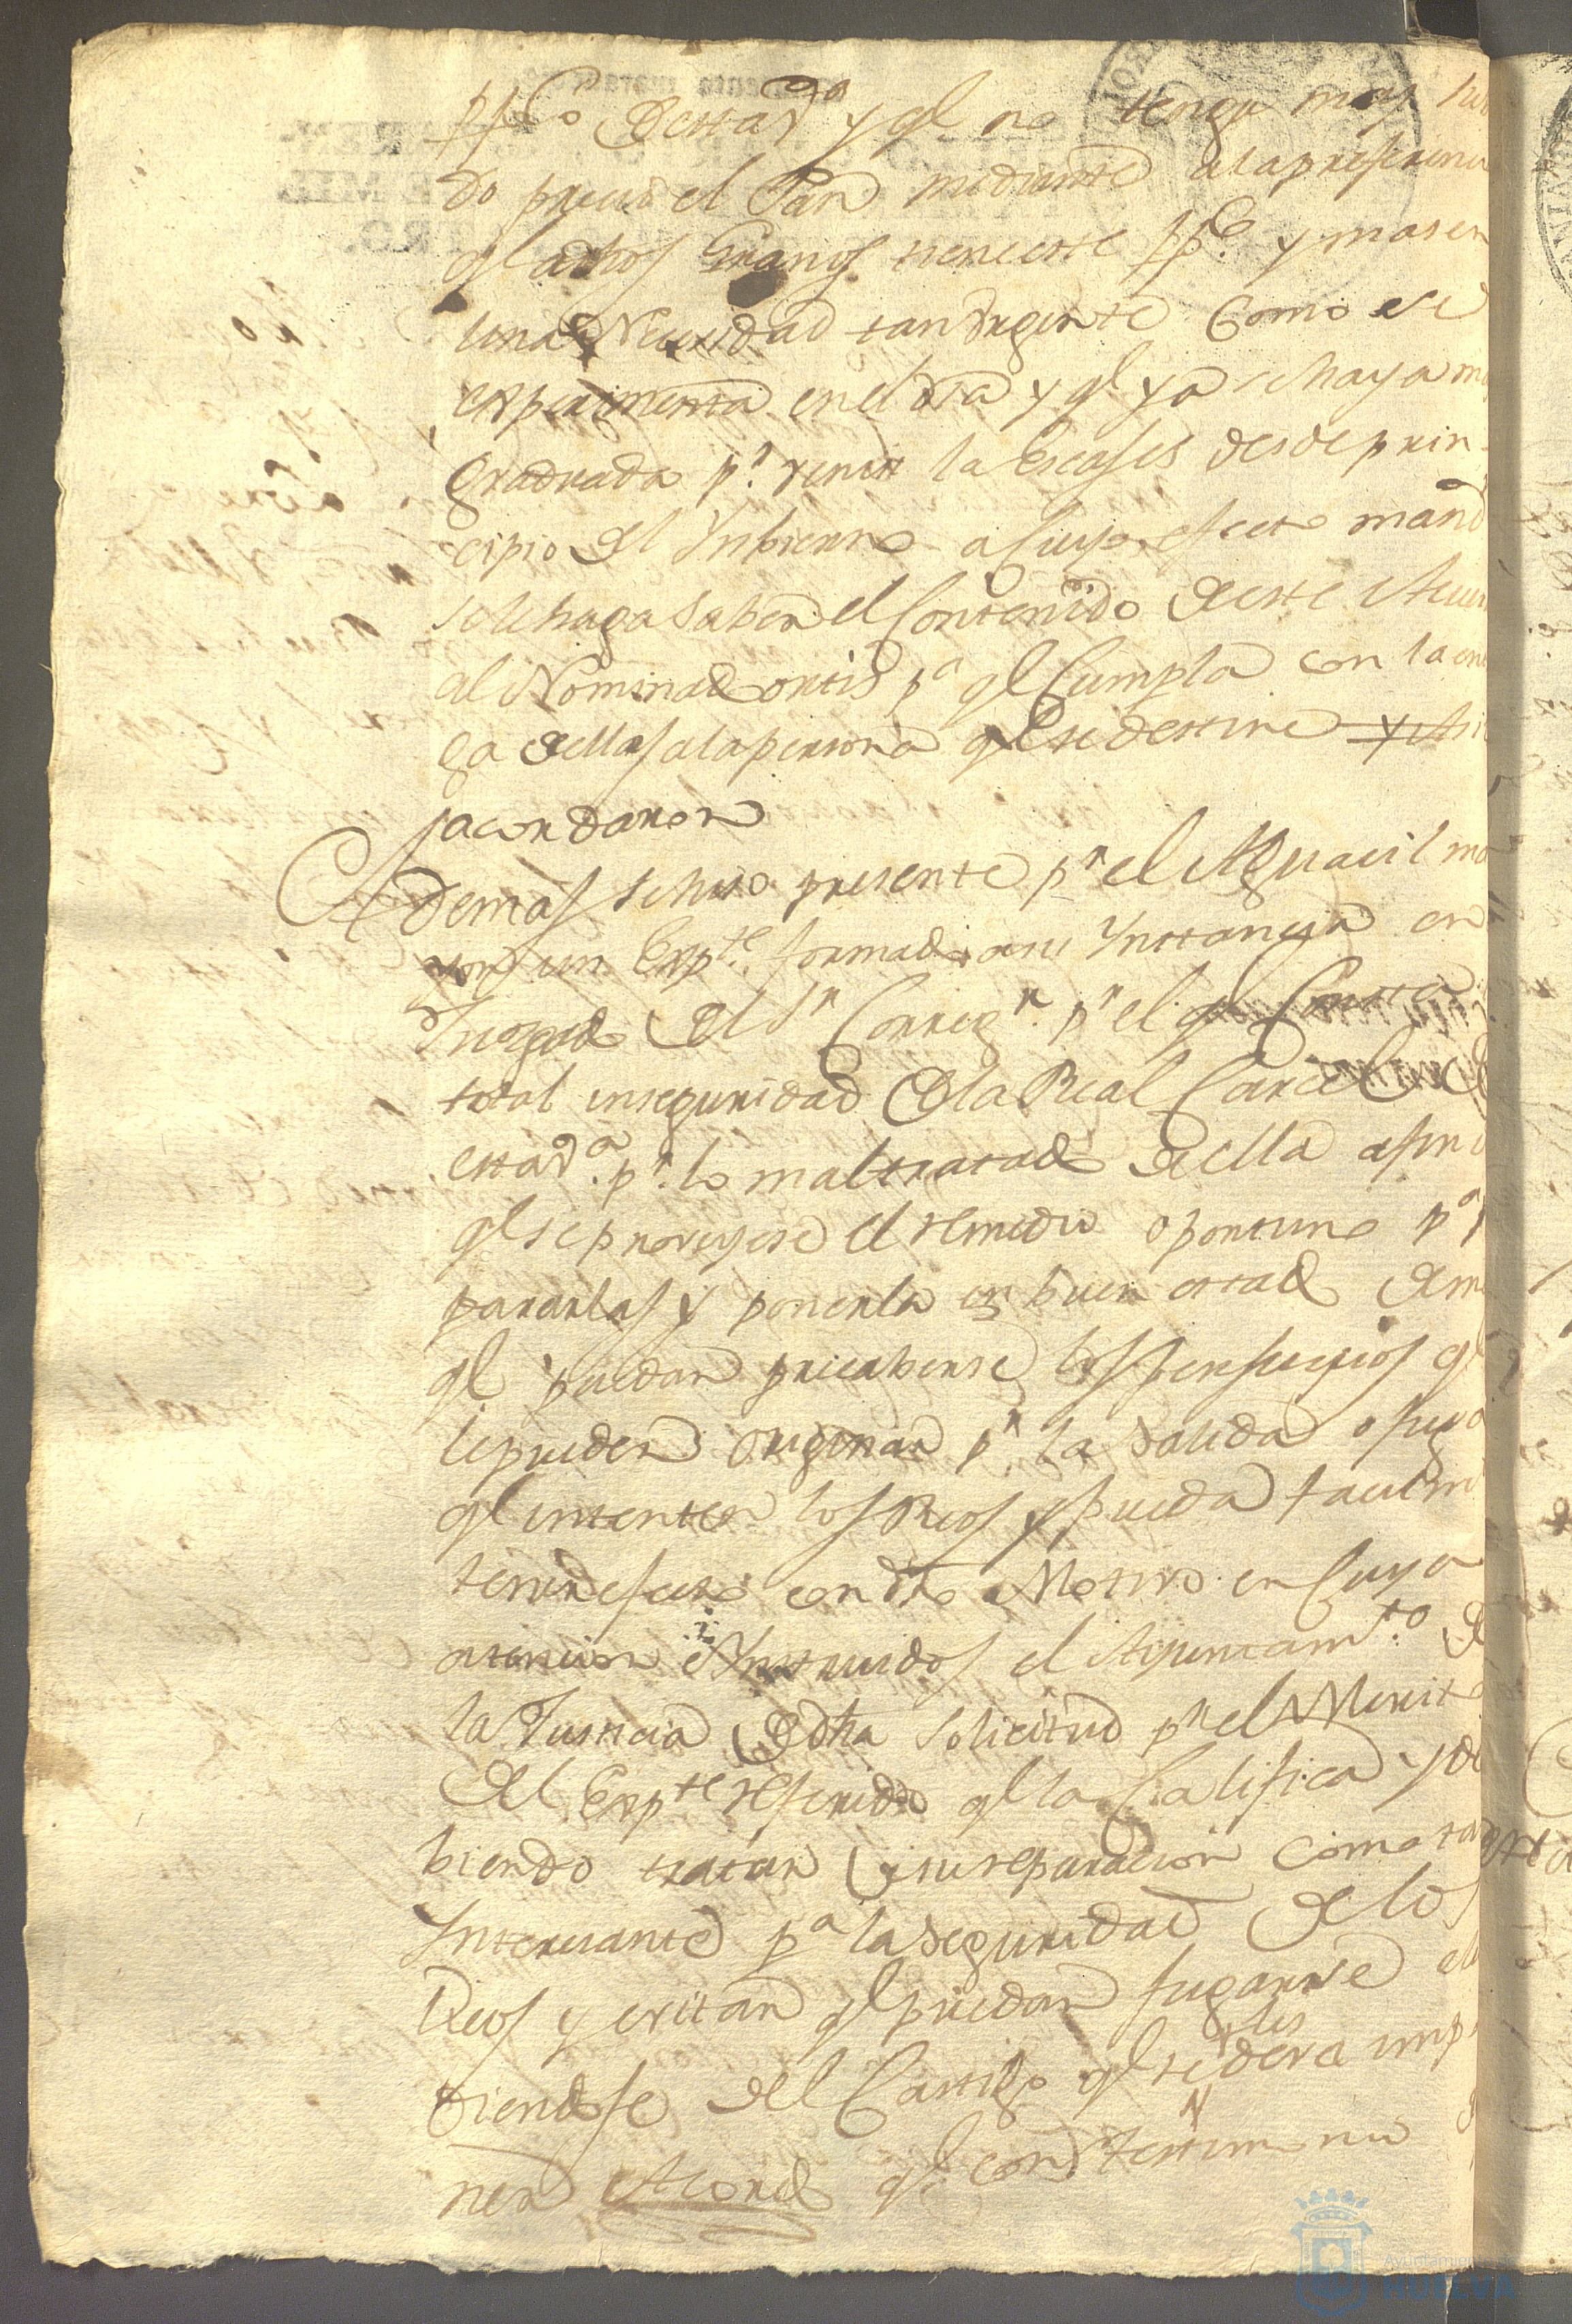 ppco de esta Va y ql no tenga mas su
do precio el Pan mediante a la preferencia
ql a dhos Granos tiene este ppco y mas en
una Necesidad tan Vrgente Como se
experimenta en el dia y ql ya se haya
graduada pr venir la Escases desde prin
cipio del Ynbierno a cuyo efecto mand
se le haga saber el Contenido de este Acuer
al Nominado ortis pa ql Cumpla con la
ga de ellas a la persona ql se destine y Asi
acordaron
Ademas se hiso presente pr el Alguacil ma
yor un Expte formado a su Ynstancia en
Juzgado del Sr Corregr pr el ql Consta
total inseguridad de la Real Carcel de
esta Va pr lo maltratado de ella a fin
ql se proveyese el remedio oportuno pa
pararlas y ponerla en buen estado de
ql puedan precaberse los perjuicios ql
le pueden originar pr la salida o fuga
ql intenten los Reos y pueda
tener efecto con dho Motivo en Cuya
atencion Ynstruidos el Ayuntamto de
la Justicia de dha solicitud pr el Merito
del Expte referido ql la Califica y de
biendo tratar de su reparacion como tan
Ynteresante pa la seguridad de los
Reos y evitar ql puedan fugarse
diendose del Castigo ql se les deva imp
ner Acordo ql con testimonio
Ayuntamiento de
HUELVA